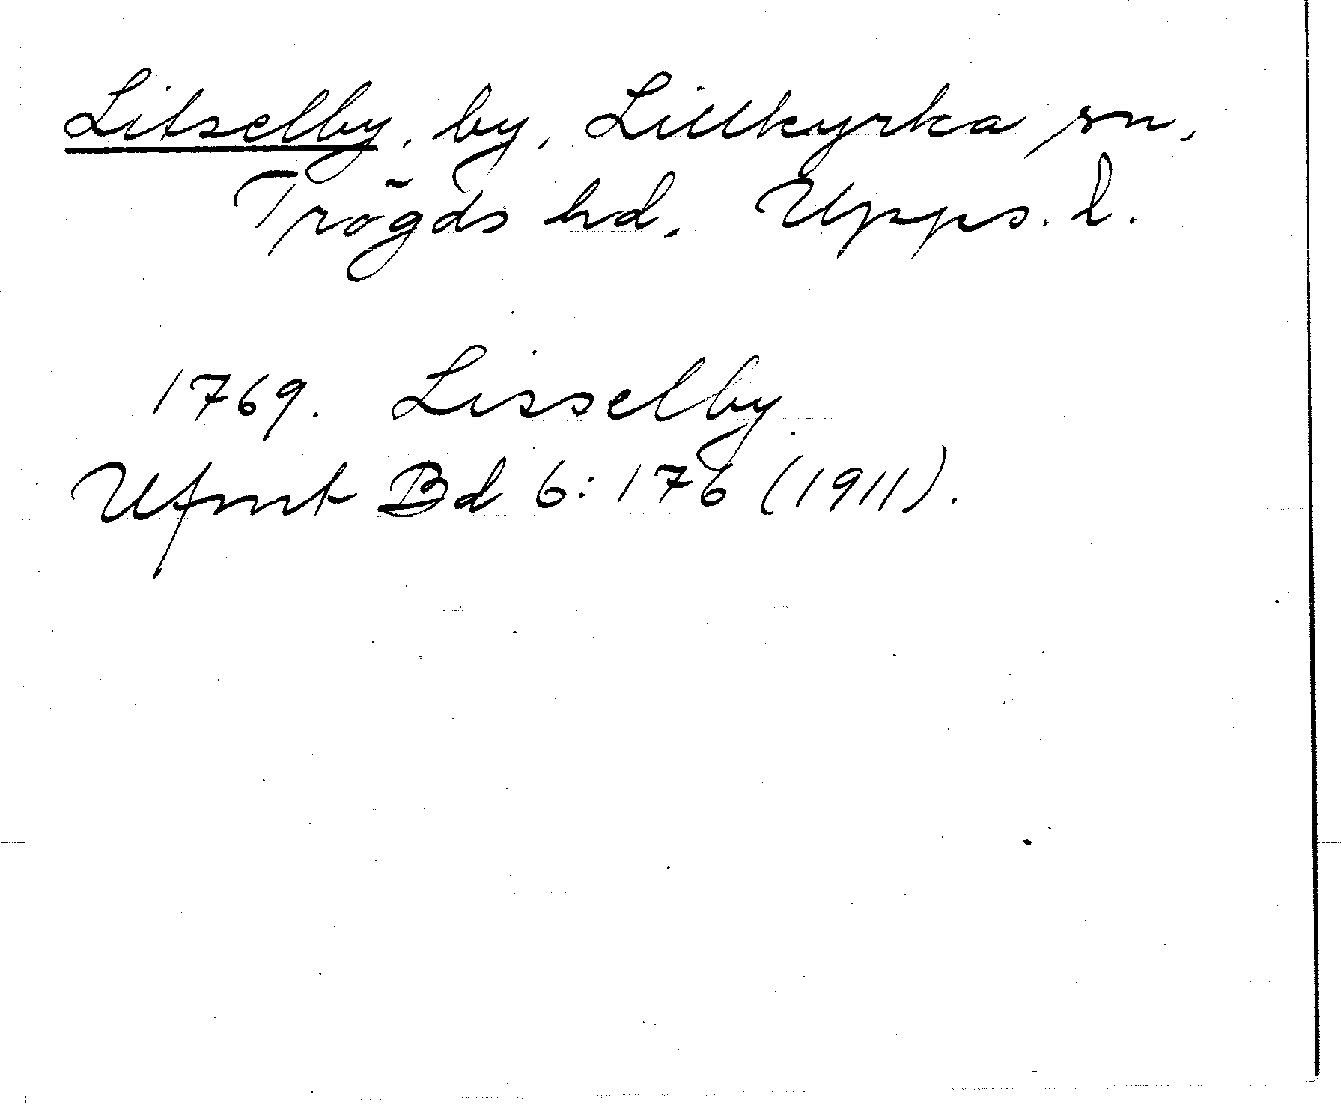 Litselby, by, Lillkyrka sn,
Trögds hd. Upps. l.
1769. Lisselby
Ufmt Bd 6: 176 (1911).